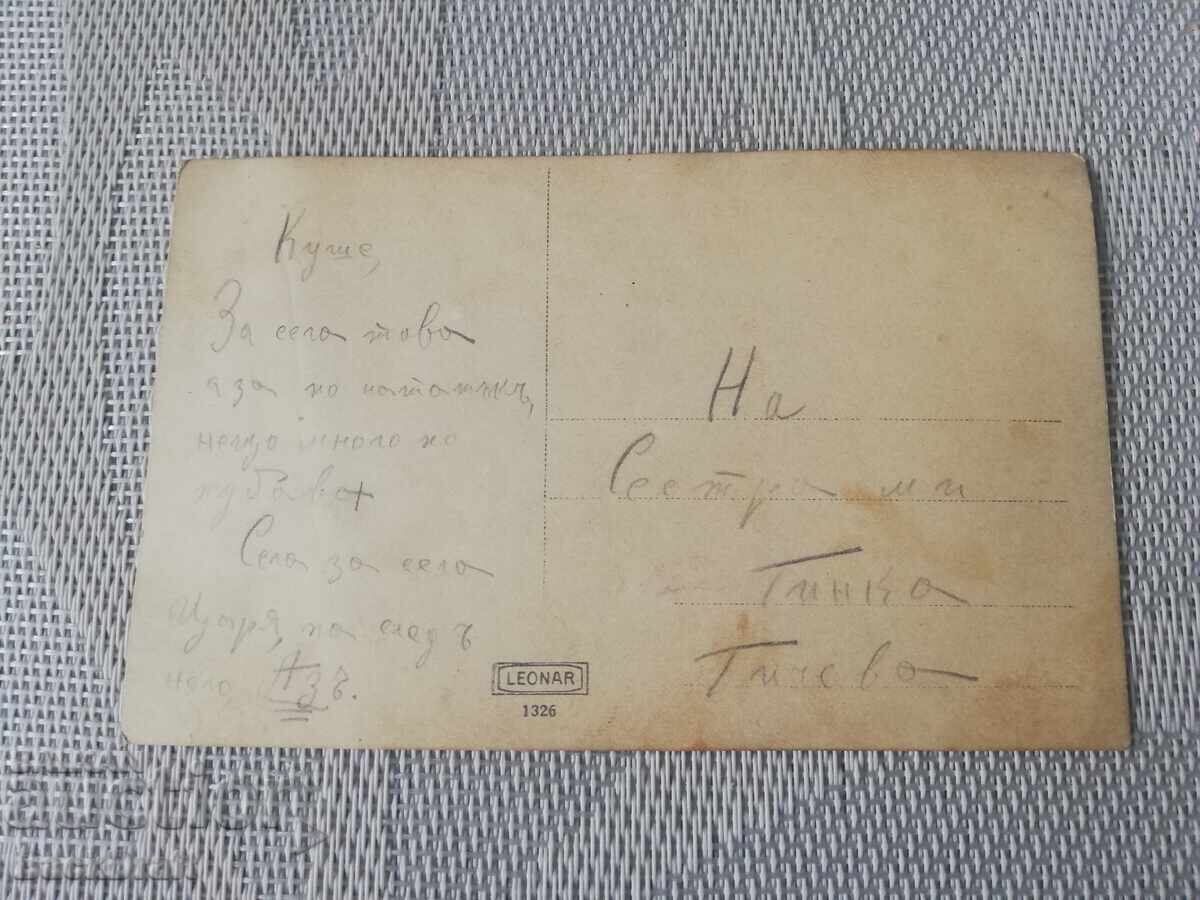 Куше,
За сега това
а за по нататъкъ,
нещо много по
хубаво
Сега за сега
Царя, па следъ
него, Азъ.
LEONAR
1326
На
Сестра ми
Гинка
Гичева